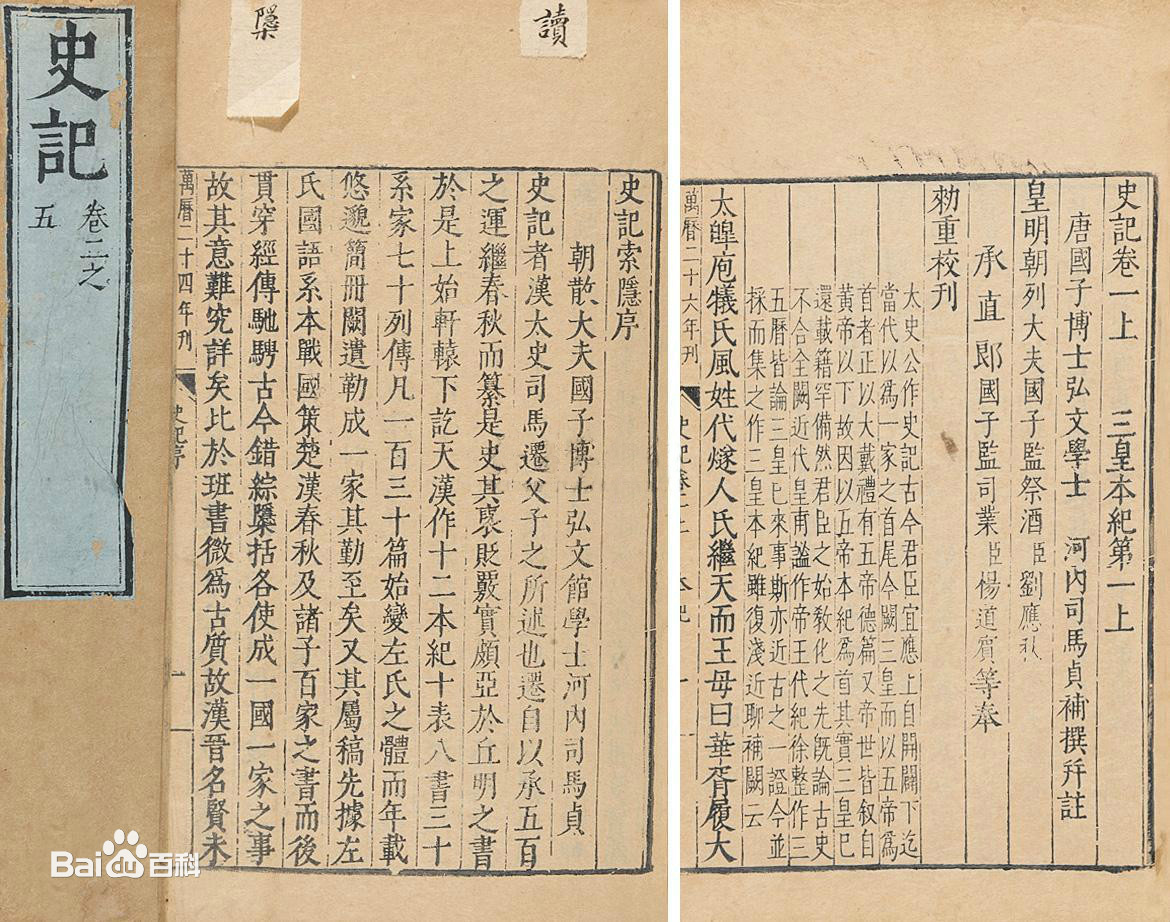 史記
卷二之
五
檃
讀
史記索隱序
朝散大夫國子博士弘文館學士河內司馬貞
史記者漢太史司馬遷父子之所述也遷自以承五百
之運繼春秋而纂是史其襃貶覈實頗亞於丘明之書
於是上始軒轅下訖天漢作十二本紀十表八書三十
系家七十列傳凡一百三十篇始變左氏之體而年載
悠邈簡冊闕遺勒成一家其勤至矣又其屬稿先據左
氏國語系本戰國策楚漢春秋及諸子百家之書而後
貫穿經傳馳騁古今錯綜檃括各使成一國一家之事
故其意難究詳矣比於班書微爲古質故漢晉名賢未
萬曆二十四年刊
史記序
一
史記卷一上 三皇本紀第一上
唐國子博士弘文學士 河內司馬貞補撰幷註
皇明朝列大夫國子監祭酒臣劉應秋
承直郎國子監司業臣楊道賓等奉
勑重校刊
太史公作史記古今君臣宜應上自開闢下迄
當代以爲一家之首尾今闕三皇而以五帝爲
首者正以大戴禮有五帝德篇又帝世皆叙自
黃帝以下故因以五帝本紀爲首其實三皇已
還載籍罕備然君臣之始敎化之先旣論古史
不合全闕近代皇甫謐作帝王代紀徐整作三
五曆皆論三皇已來事斯亦近古之一證今並
採而集之作三皇本紀雖復淺近聊補闕云
太皥庖犧氏風姓代燧人氏繼天而王母曰華胥履大
萬曆二十六年刊
史記卷一上 本紀 一
Bai百科